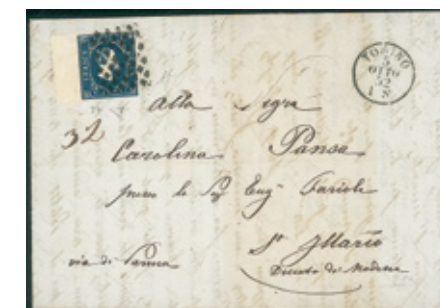 TORINO
5
OTTO
52
1 S
Alla Sigra
32
Carolina Pansa
presso le Sig Eug Farioli
St Illario
via di Parma
Ducato di Modena